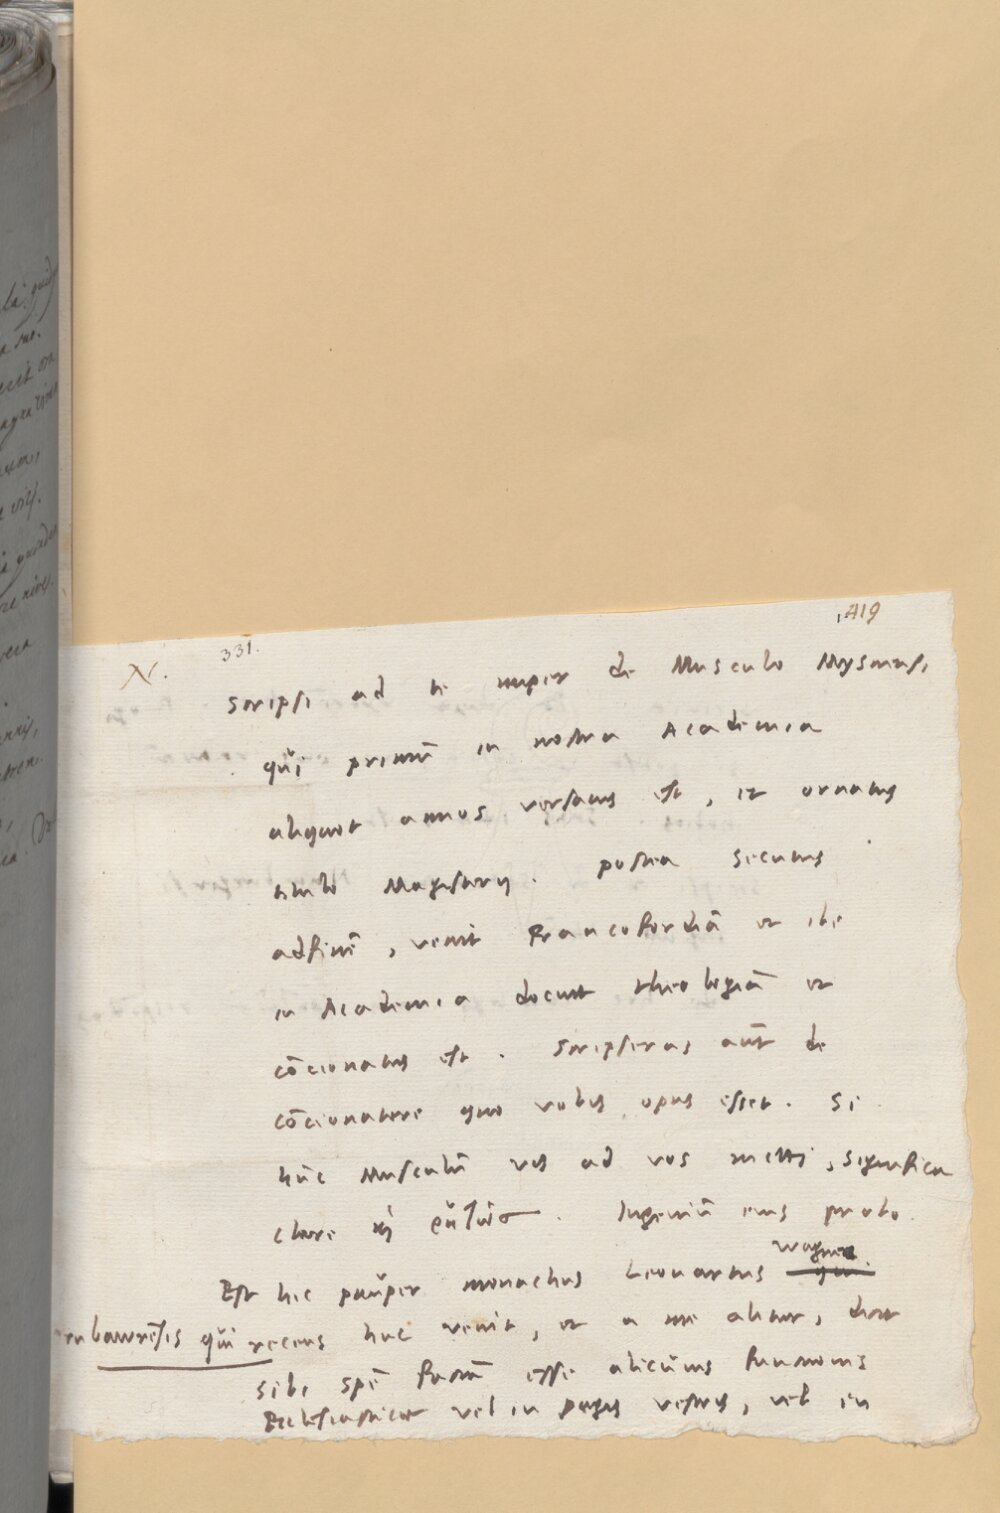 N.
331.
A19
Scripsi ad te nuper de Musculo Mysnensi,
qui primū in nostra Academia
aliquot annos versatus est, et ornatus
titulo Magisterij. postea secutus
adfinē, venit Francofordiā et ibi
in Academia docuit theologiā et
cōcionatus est. Scripseras aūt de
cōcionatore quo vobis opus esset. Si
hūc Musculū vis ad vos mitti, significa
Ingeniū eius probo.
Est hic pauper monachus Leonartus Wagner
qui recens huc venit, et a me alitur, dicit
sibi spē factā esse alicuius functionis
Ecclesiasticae vel in pagis vestris, vel in